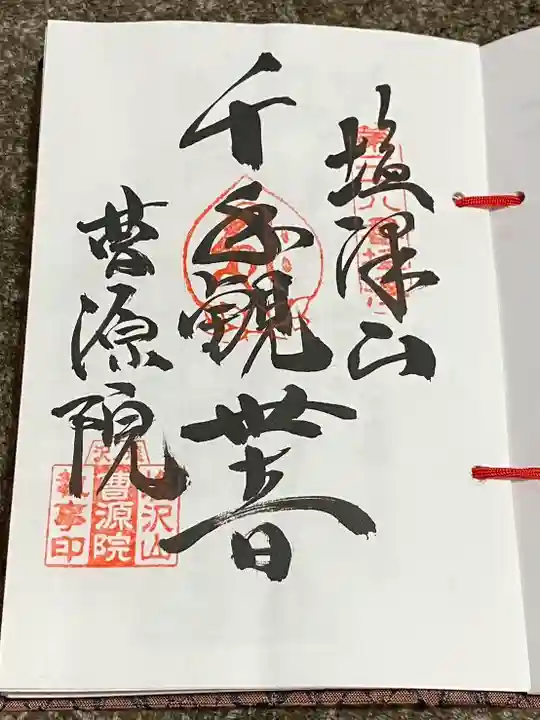 塩澤山
千手観世音
曹源院
沢山
曹源院
執事印